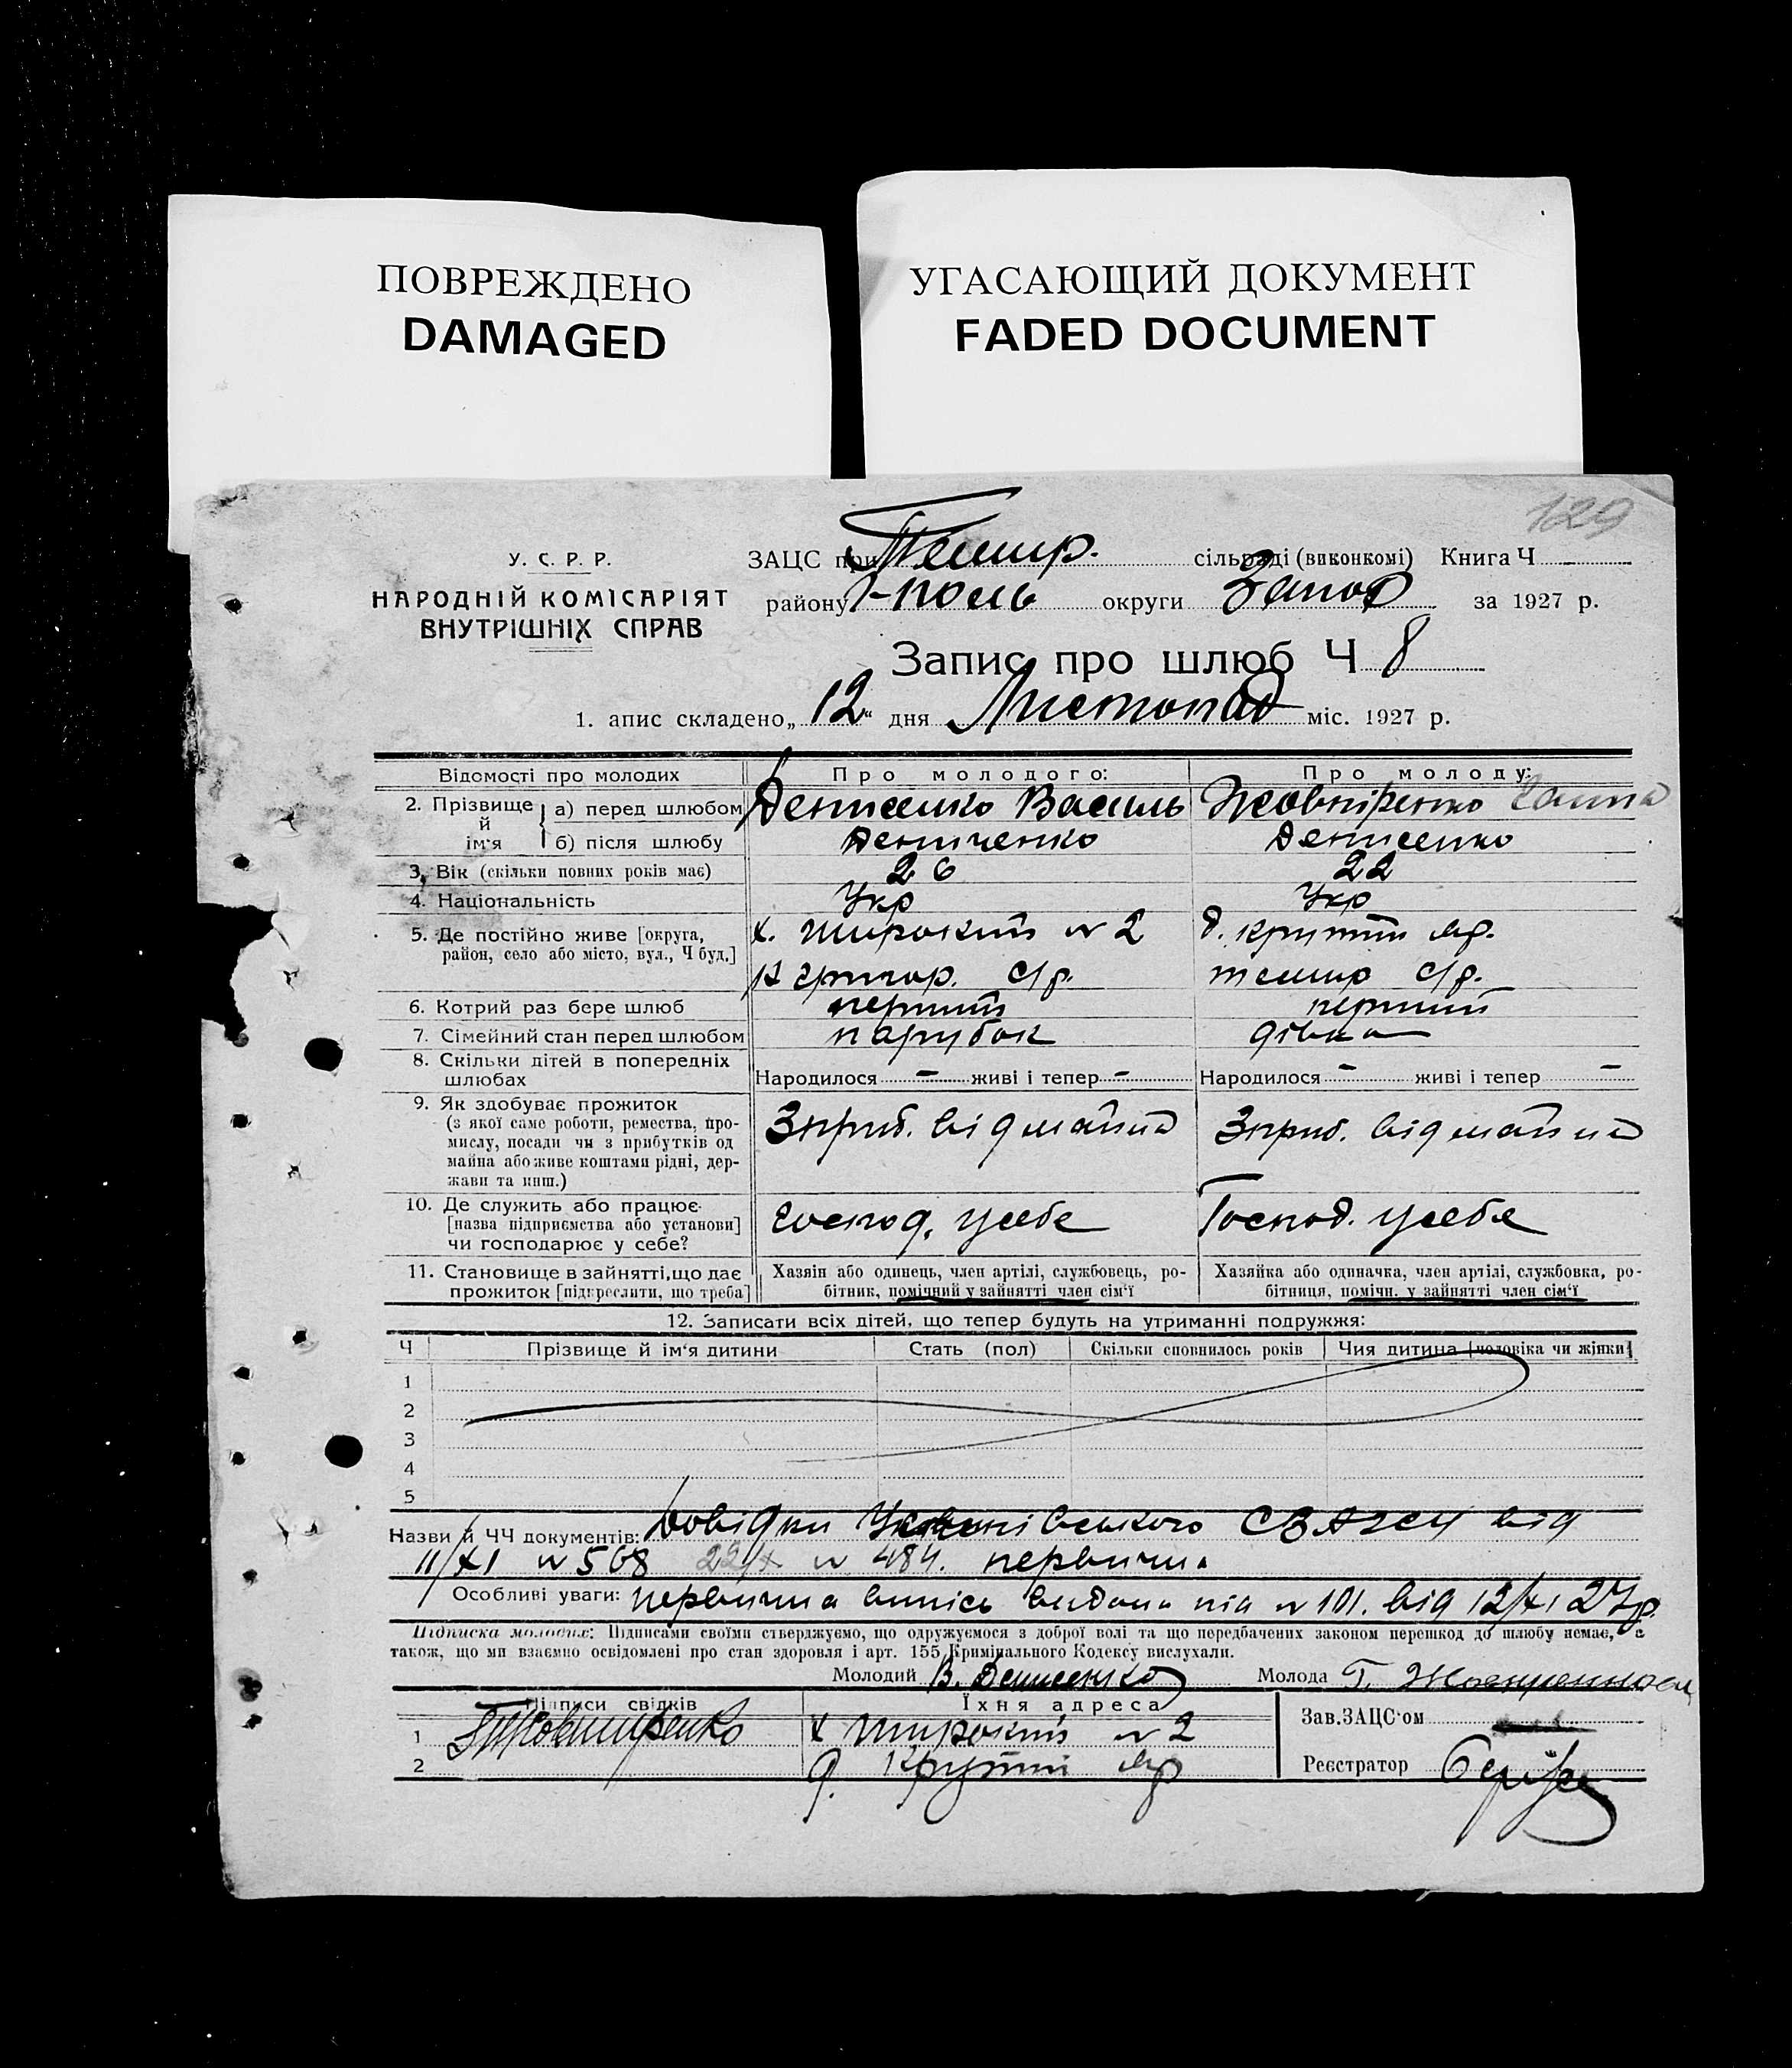 ПОВРЕЖДЕНО
DAMAGED
УГАСАЮЩИЙ ДОКУМЕНТ
FADED DOCUMENT
129
У. С. Р. Р.
НАРОДНІЙ КОМІСАРІЯТ
ВНУТРІШНІХ СПРАВ
ЗАЦС при Темир. сільраді (виконкомі) Книга Ч
району Г-поль округи Запор за 1927 р.
Запис про шлюб Ч 8
1. апис складено „ 12 “ дня Листопад міс. 1927 р.
Відомості про молодих Про молодого: Про молоду:
2. Прізвище й ім‘я а) перед шлюбом Денисенко Василь Жовніренко Ганна
б) після шлюбу Дениченко Денисенко
3. Вік (скільки повних років має) 26 22
4. Національність Укр Укр
5. Де постійно живе [округа, х. широкий № 2 д. крутий яр.
район, село або місто, вул., Ч буд.]
григор. с/р. темир с/р.
6. Котрий раз бере шлюб перший перший
7. Сімейний стан перед шлюбом парубок дівка
8. Скільки дітей в попередніх
шлюбах Народилося – живі і тепер – Народилося – живі і тепер –
9. Як здобуває прожиток
(з якої саме роботи, ремества, про-
мислу, посади чи з прибутків од
майна або живе коштами рідні, дер-
жави та инш.)
Зприб. від майна Зприб. від майна
10. Де служить або працює
[назва підприємства або установи]
чи господарює у себе?
Господ. усебе Господ. усебе
11. Становище в зайнятті, що дає Хазяін або одинець, член артілі, службовець, ро- Хазяйка або одиначка, член артілі, службовка, ро-
прожиток [підкреслити, що треба] бітник, помічний у зайнятті член сім‘ї бітниця, помічн. у зайнятті член сім‘ї
12. Записати всіх дітей, що тепер будуть на утриманні подружжя:
Ч Прізвище й ім‘я дитини Стать (пол) Скільки сповнилось років Чия дитина (чоловіка чи жінки)
1
2
3
4
5
Назви й ЧЧ документів: Довідки від
11/XI № 568 22/X № 484. первична
Особливі уваги: первична випісь видана під № 101. від 12/XI 27р.
Підписка молодих: Підписами своїми стверджуємо, що одружуємося з доброї волі та що передбачених законом перешкод до шлюбу немає, а
також, що ми взаємно освідомлені про стан здоровля і арт. 155 Кримінального Кодексу вислухали.
Молодий В. Денисенко Молода Г. Жовніренкова
Підписи свідків Їхня адреса
Зав.ЗАЦС‘ом
1 Жовниренко х широкий № 2
2 д. Крутий яр
Реєстратор